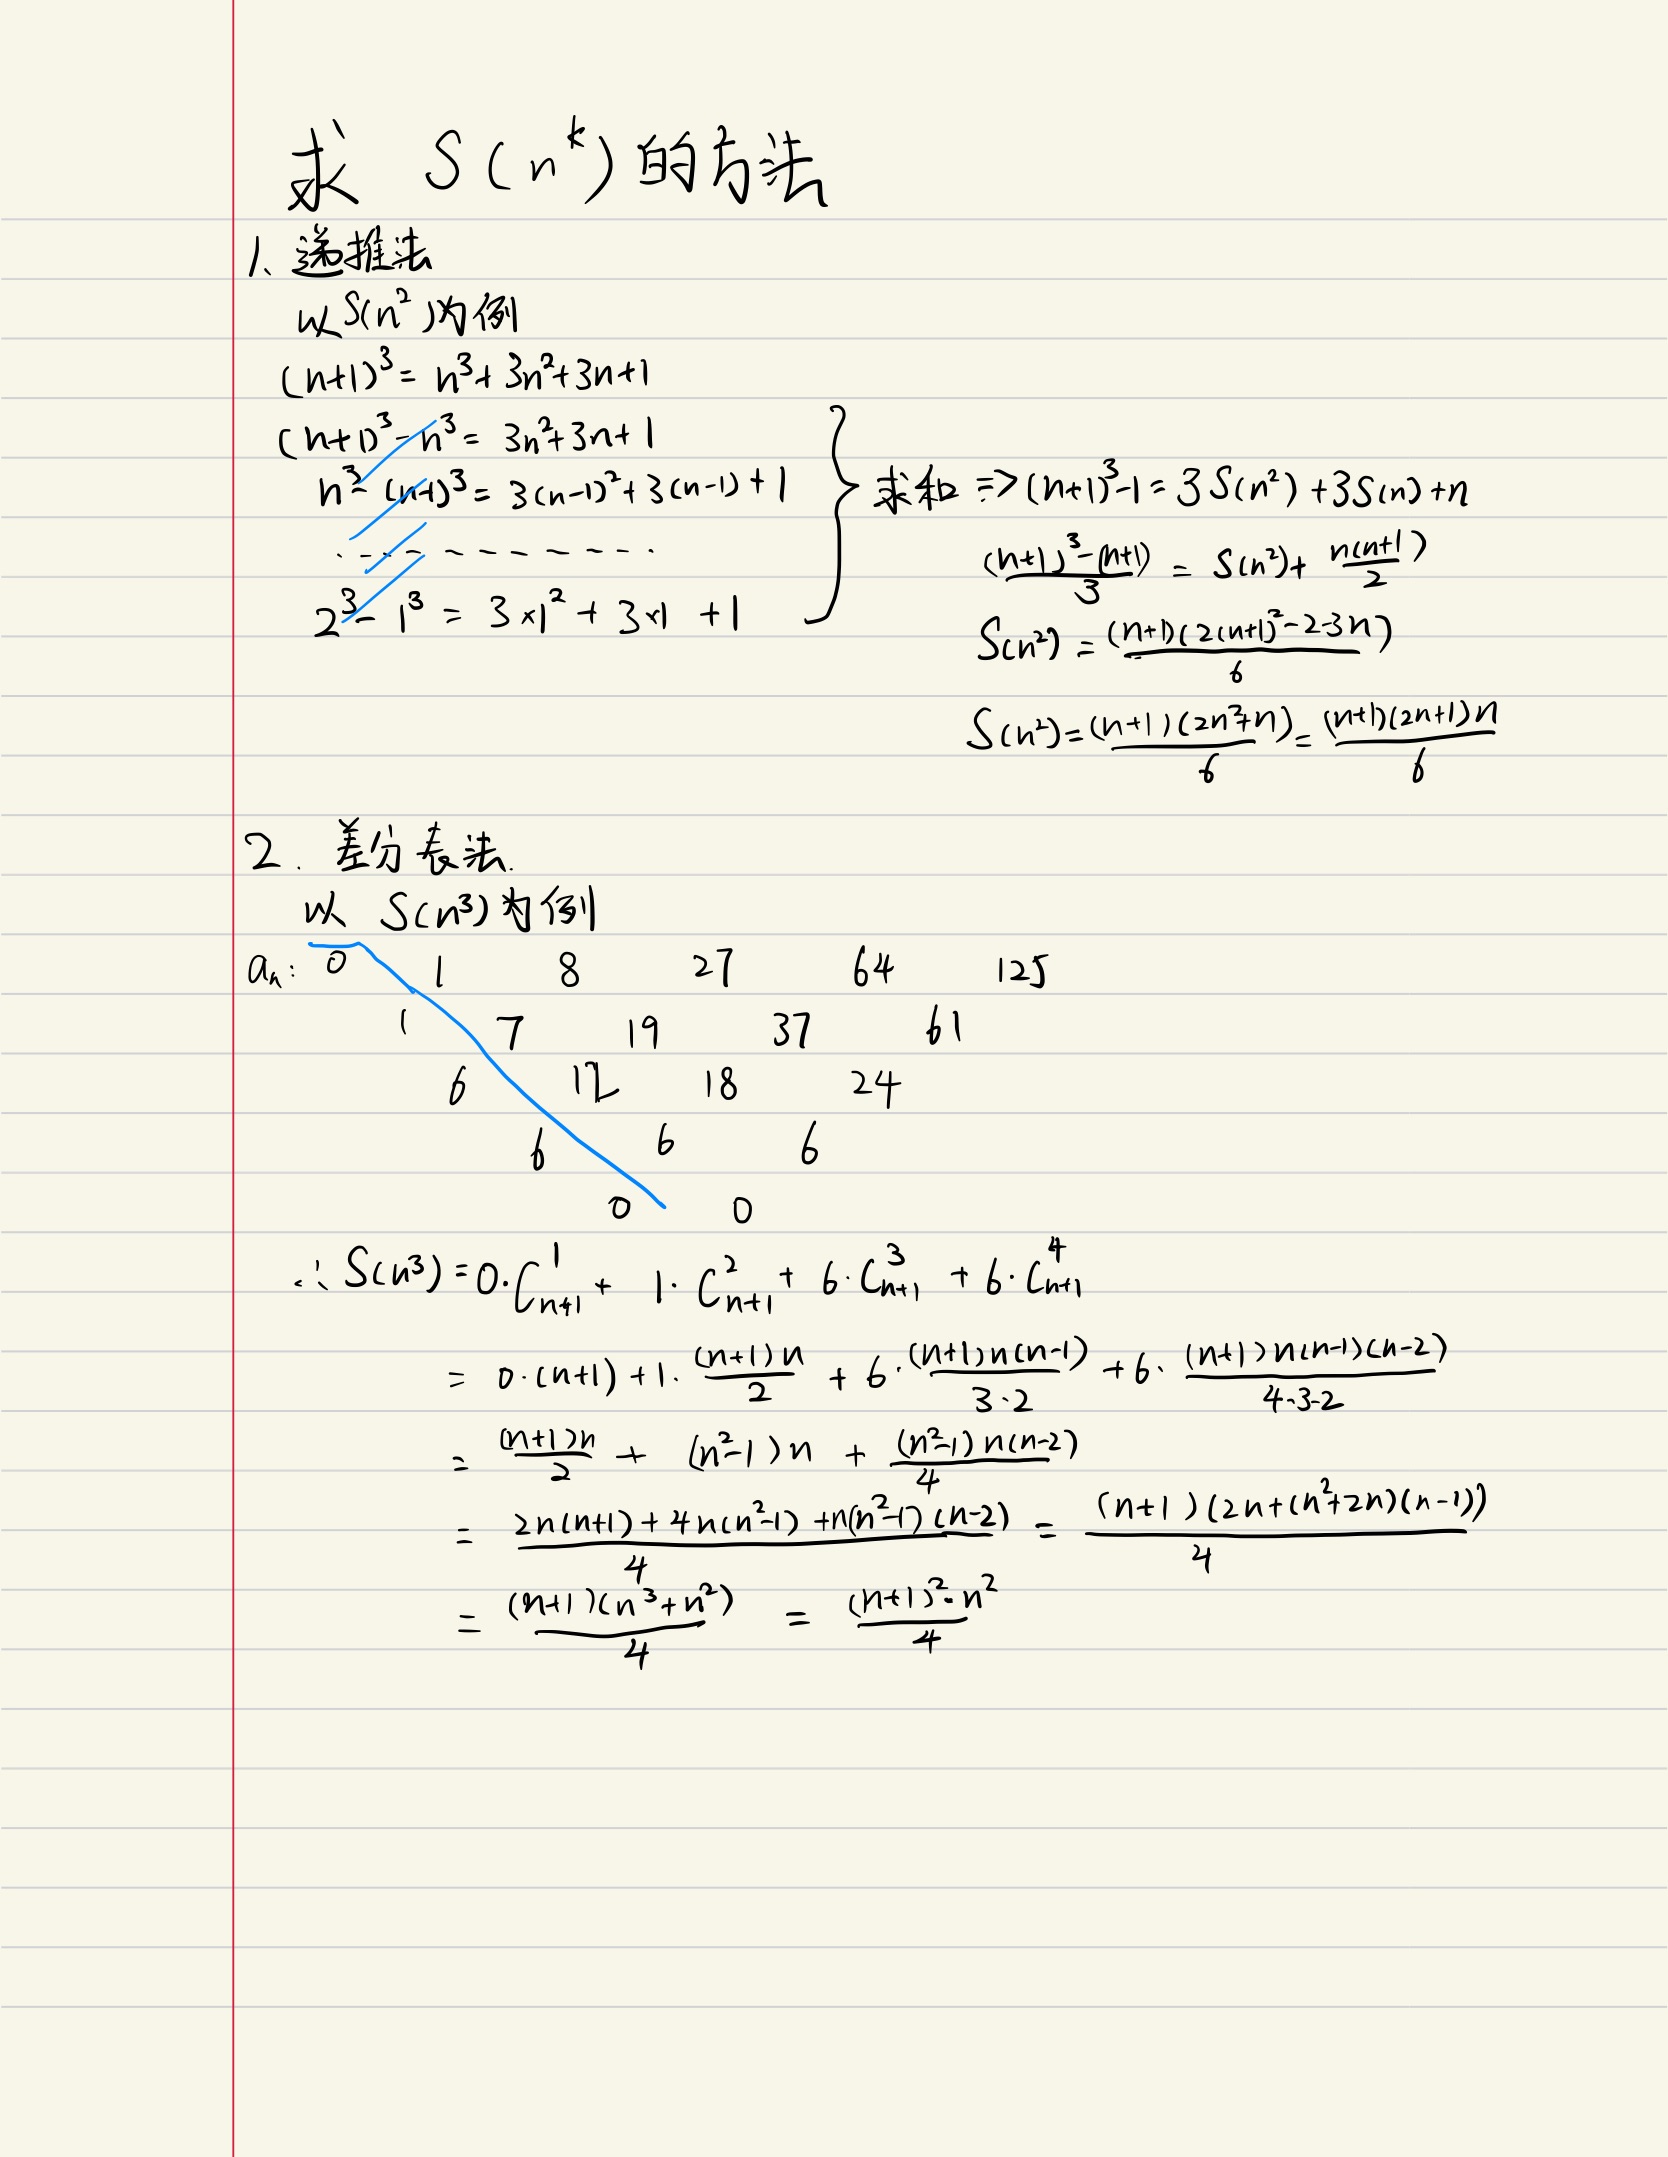 求 S(n^k)的方法
1、递推法
以S(n²)为例
(n+1)³= n³+3n²+3n+1
(n+1)³-n³= 3n²+3n+1
n³-(n-1)³= 3(n-1)²+3(n-1)+1
. - - - - - - - - - - .
2³-1³ = 3×1²+3×1 +1
} 求和 => (n+1)³-1=3S(n²)+3S(n)+n
((n+1)³-(n+1))/3 = S(n²)+ n(n+1)/2
S(n²) = (n+1)(2(n+1)²-2-3n)/6
S(n²)=(n+1)(2n²+n)/6=(n+1)(2n+1)n/6
2. 差分表法.
以 S(n³)为例
aₙ: 0 1 8 27 64 125
1 7 19 37 61
6 12 18 24
6 6 6
0 0
∴ S(n³)=0·C¹ₙ₊₁+ 1·C²ₙ₊₁+ 6·C³ₙ₊₁ + 6·C⁴ₙ₊₁
= 0·(n+1)+1·(n+1)n/2 + 6·(n+1)n(n-1)/3·2 +6·(n+1)n(n-1)(n-2)/4·3·2
= (n+1)n/2 + (n²-1)n + (n²-1)n(n-2)/4
= (2n(n+1)+4n(n²-1)+n(n²-1)(n-2))/4 = (n+1)(2n+(n²+2n)(n-1))/4
= (n+1)(n³+n²)/4 = (n+1)²·n²/4